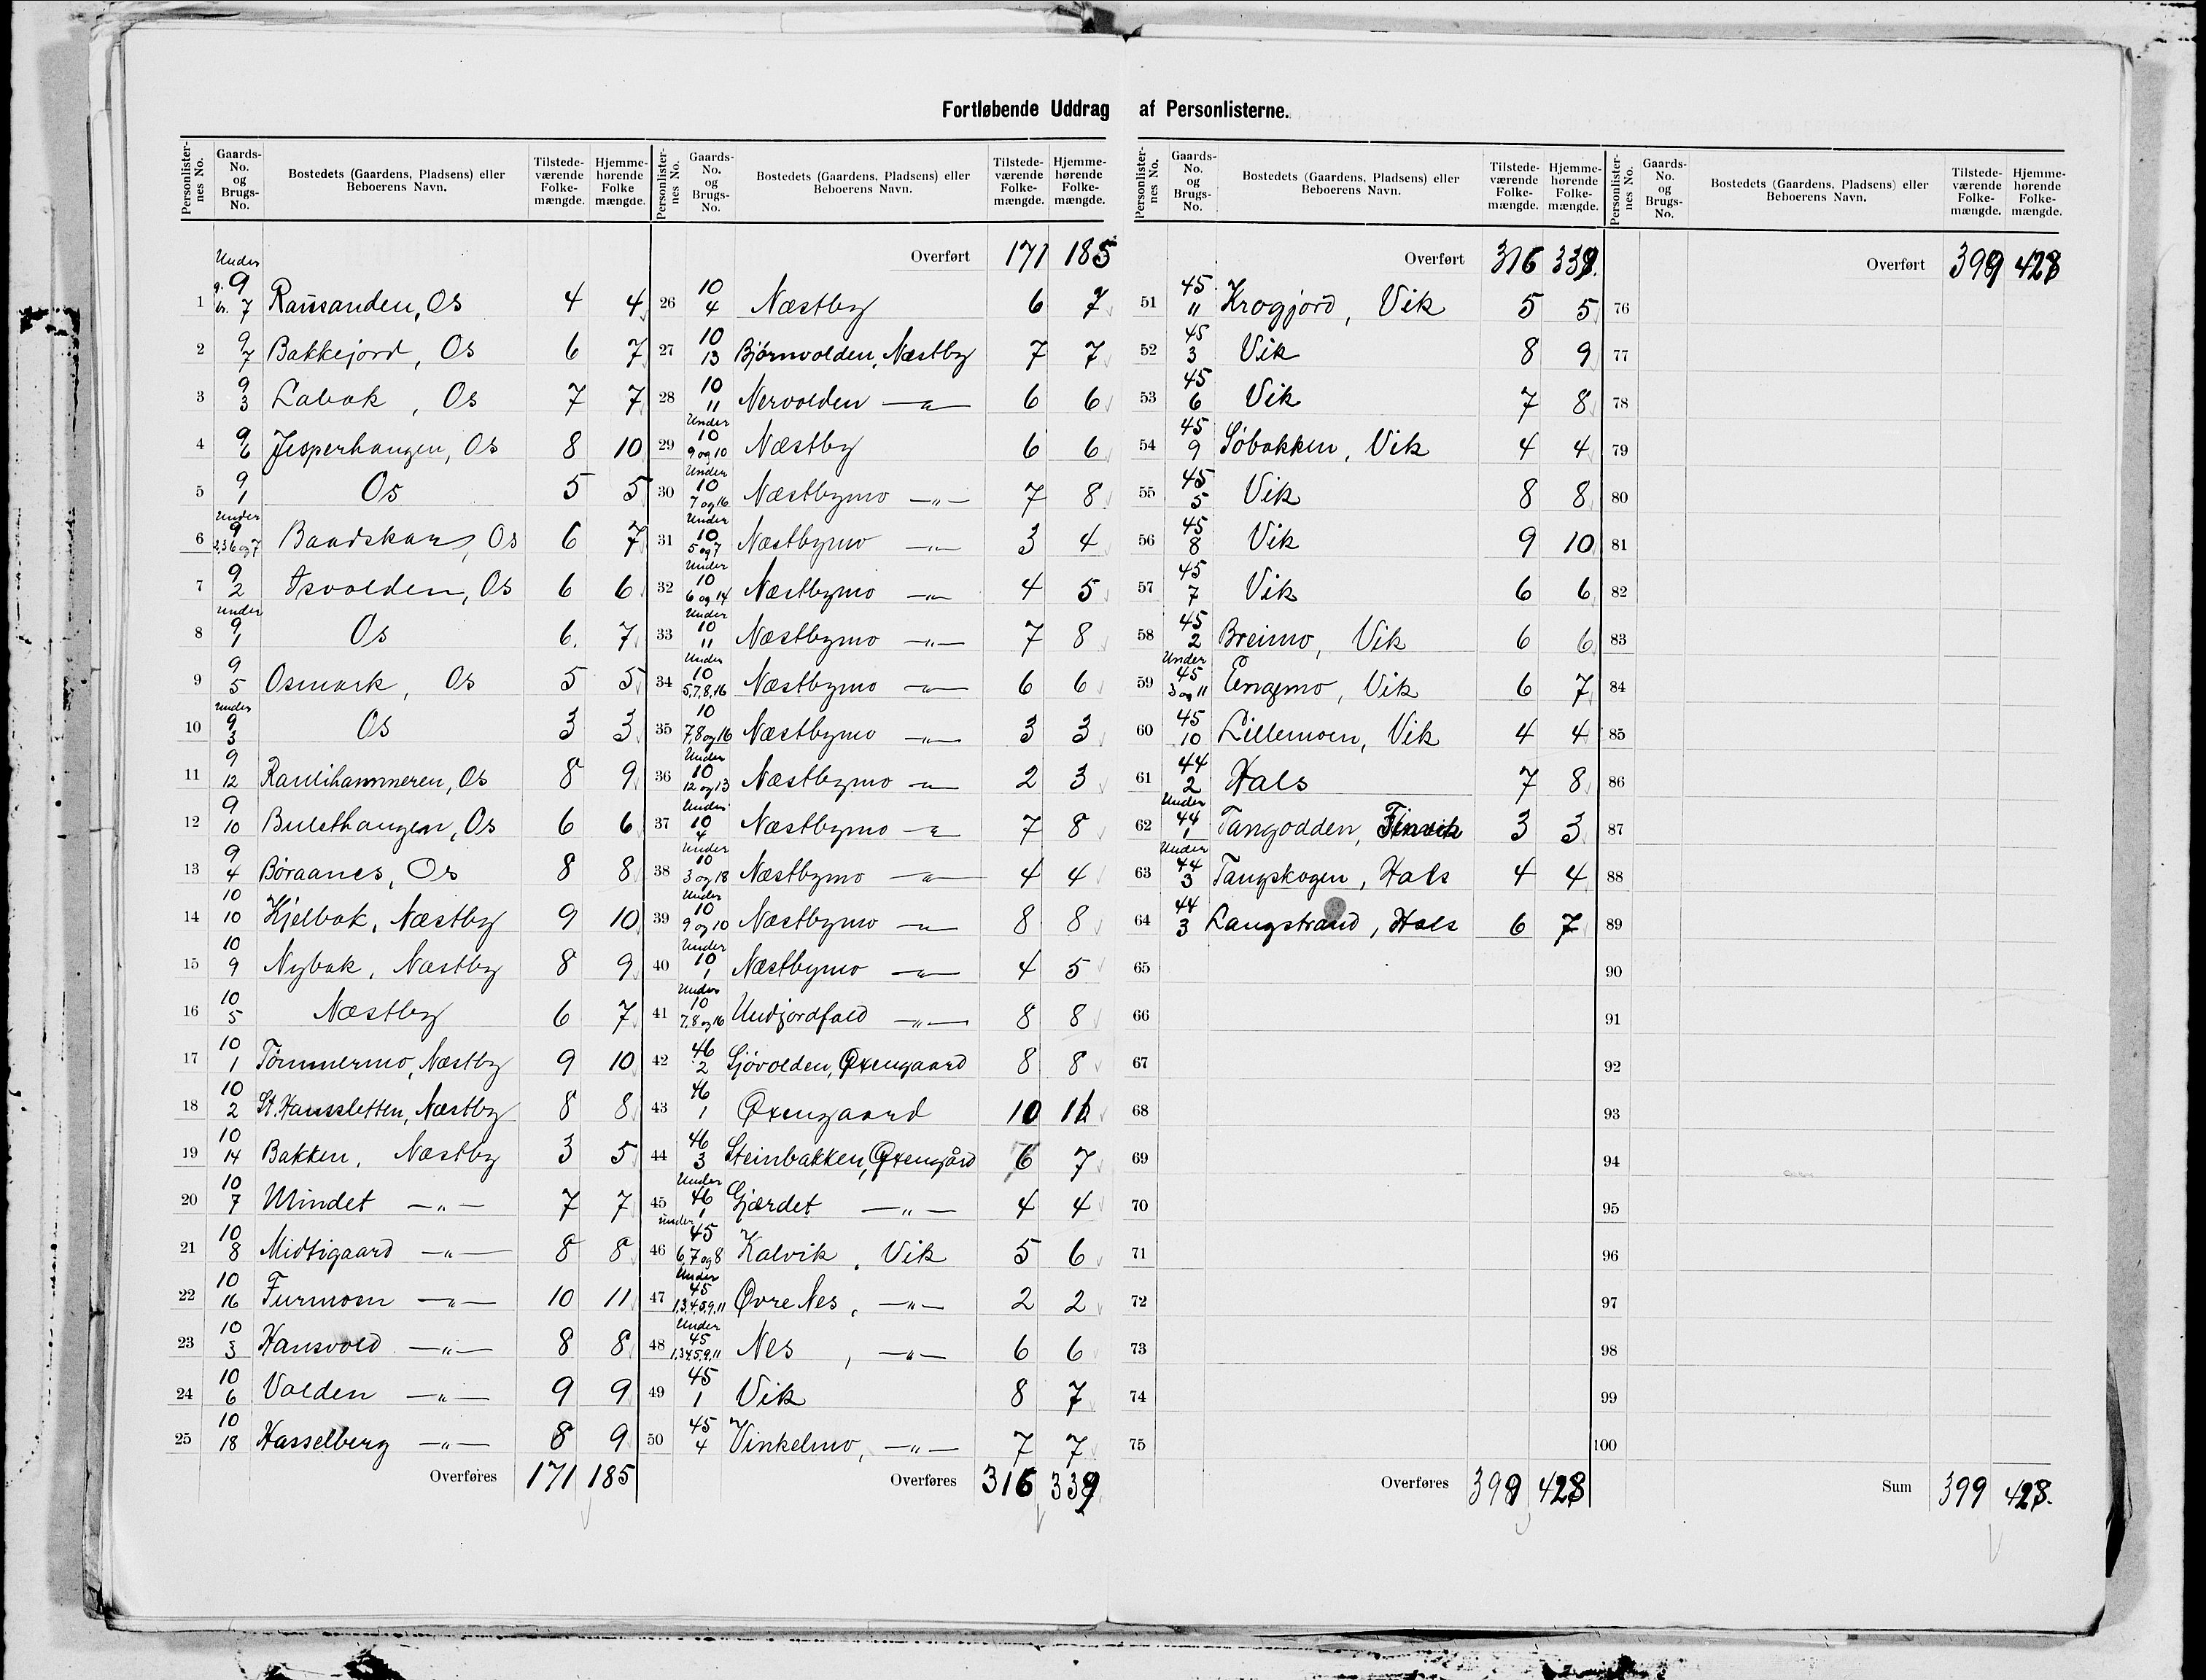 Fortløbende Uddrag af Personlisterne.
Personlister-nes No. | Gaards-No. og Brugs-No. | Bostedets (Gaardens, Pladsens) eller Beboerens Navn. | Tilstede-værende Folke-mængde. | Hjemme-hørende Folke mængde.
1 Under g. 9 br. 7 Raüsanden, Os 4 4
2 9 7 Bakkejord, Os 6 7
3 9 3 Labak, Os 7 7
4 9 6 Jesperhaugen, Os 8 10
5 9 1 Os 5 5
6 Under 9 2,3 6 og 7 Baadskar, Os 6 7
7 9 2 Isvolden, Os 6 6
8 under 9 1 Os 6. 7
9 9 5 Osmark, Os 5 5
10 under 9 3 Os 3 3
11 9 12 Raulihammeren, Os 8 9
12 9 10 Bulethaugen, Os 6 6
13 9 4 Böraanes, Os 8 8
14 10 10 Kjelbak, Næstby 9 10
15 10 9 Nybak, Næstby 8 9
16 10 5 Næstby 6 7
17 10 1 Tömmermo, Næstby 9 10
18 10 2 St. Hanssletten, Næstby 8 8
19 10 14 Bakken, Næstby 3 5
20 10 7 Mindet —"— 7 7
21 10 8 Midtigaard —"— 8 8
22 10 16 Furmoen —"— 10 11
23 10 3 Hansvold —"— 8 8
24 10 6 Valden —"— 9 9
25 10 18 Hasselberg —"— 8 9
Overføres 171 185
Personlister-nes No. | Gaards-No. og Brugs-No. | Bostedets (Gaardens, Pladsens) eller Beboerens Navn. | Tilstede-værende Folke-mængde. | Hjemme-hørende Folke-mængde.
Overført 171 185
26 10 4 Næstby 6 7
27 10 13 Bjørnvolden, Næstby 7 7
28 10 11 Nervolden —"— 6 6
29 Under 10 9 og 10 Næstby 6 6
30 Under 10 7 og 16 Næstbymo —"— 7 8
31 Under 10 5 og 7 Næstbymo —"— 3 4
32 Under 10 6 og 14 Næstbymo —"— 4 5
33 Under 10 11 Næstbymo —"— 7 8
34 Under 10 5,7,8,16 Næstbymo —"— 6 6
35 10 7,8 og 16 Næstbymo —"— 3 3
36 Under 10 12 og 13 Næstbymo —"— 2 3
37 Under 10 4 Næstbymo —"— 7 8
38 Under 10 3 og 18 Næstbymo —"— 4 4
39 Under 10 9 og 10 Næstbymo —"— 8 8
40 Under 10 1 Næstbymo —"— 4 5
41 Under 10 7,8 og 16 Undjordfald —"— 8 8
42 46 2 Sjövolden, Øxengaard 8 8
43 46 1 Øxengaard 10 11
44 46 3 Steinbakken, Øxengård 6 7
45 Under 46 1 Gjærdet —"— 4 4
46 under 45 6,7 og 8 Kalvik, Vik 5 6
47 Under 45 1,3,4,5,9,11 Øvre Nes, —"— 2 2
48 Under 45 1,3,4,5,9,11 Nes, —"— 6 6
49 45 1 Vik 8 7
50 45 4 Vinkelmo, —"— 7 7
Overføres 316 339
Personlister-nes No. | Gaards-No. og Brugs-No. | Bostedets (Gaardens, Pladsens) eller Beboerens Navn. | Tilstede-værende Folke-mængde. | Hjemme-hørende Folke-mængde.
Overført 316 339.
51 45 11 Krogjord, Vik 5 5
52 45 3 Vik 8 9
53 45 6 Vik 7 8
54 45 9 Söbakken, Vik 4 4
55 45 5 Vik 8 8
56 45 8 Vik 9 10
57 45 7 Vik 6 6
58 45 2 Breimo, Vik 6 6
59 Under 45 3 og 11 Engmo, Vik 6 7
60 45 10 Lillemoen, Vik 4 4
61 44 2 Hals 7 8
62 Under 44 1 Tangodden, 3 3
63 Under 44 3 Tangskogen, Hals 4 4
64 44 3 Langstrand, Hals 6 7
65
66
67
68
69
70
71
72
73
74
75
Overføres 399 428
Personlister-nes No. | Gaards-No. og Brugs-No. | Bostedets (Gaardens, Pladsens) eller Beboerens Navn. | Tilstede-værende Folke-mængde. | Hjemme-hørende Folke-mængde.
Overført 399 428
76
77
78
79
80
81
82
83
84
85
86
87
88
89
90
91
92
93
94
95
96
97
98
99
100
Sum 399 428.